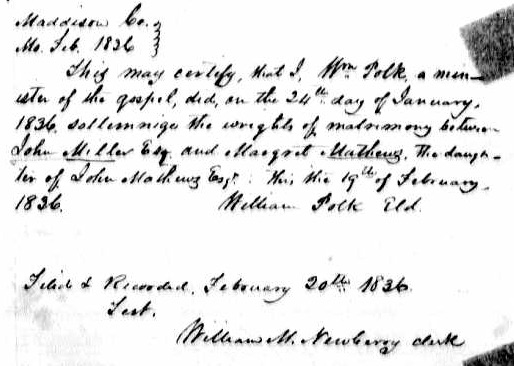 Maddison Co. }
Mo. Feb. 1836 }
This may certify, that I, Wm Polk, a min-
ister of the gospel, did, on the 24th day of January,
1836, sollemnize the wrights of matrimony between
John Miller Esq. and Margret Mathews, The daugh-
ter of John Mathews Esqr. : this the 19th of February,
1836. William Polk Eld.
Filed & Recorded, February 20th 1836.
Test.
William M. Newberry clerk